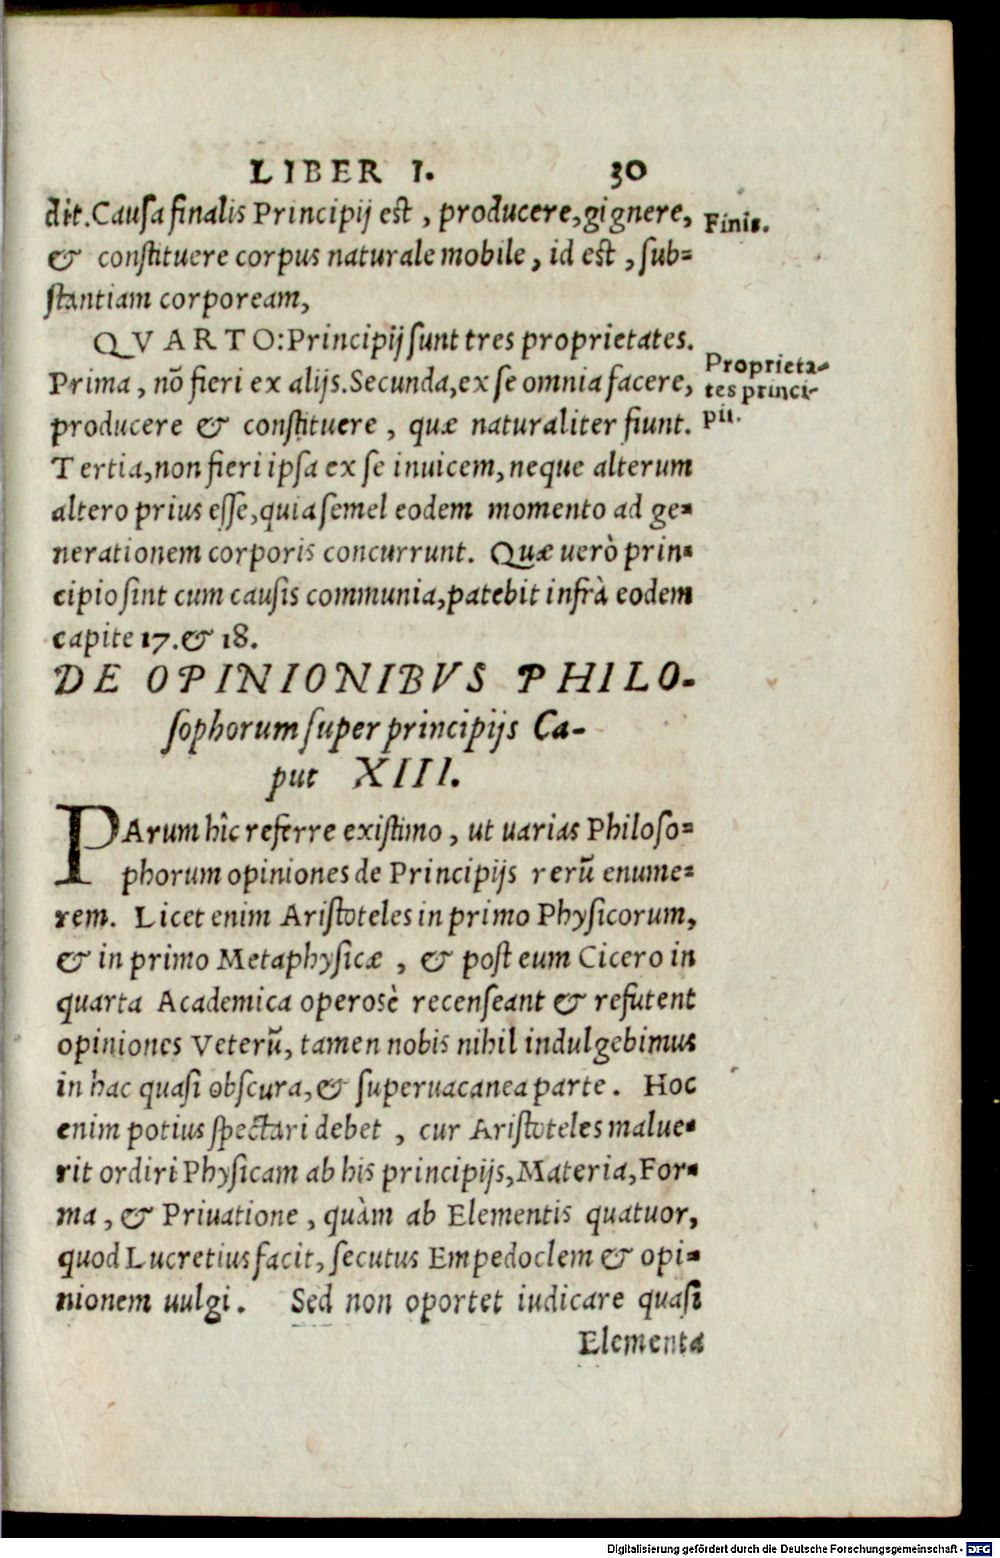 LIBER I. 30
dit. Causa finalis Principij est, producere, gignere,
Finis.
& constituere corpus naturale mobile, id est, sub-
stantiam corpoream,
QVARTO: Principij sunt tres proprietates.
Prima, nō fieri ex alijs. Secunda, ex se omnia facere,
Proprieta-
tes princi-
pii.
producere & constituere, quæ naturaliter fiunt.
Tertia, non fieri ipsa ex se inuicem, neque alterum
altero prius esse, quia semel eodem momento ad ge-
nerationem corporis concurrunt. Quæ uerò prin-
cipio sint cum causis communia, patebit infrà eodem
capite 17. & 18.
DE OPINIONIBVS PHILO-
sophorum super principijs Ca-
put XIII.
PArum hîc referre existimo, ut uarias Philoso-
phorum opiniones de Principijs rerū enume-
rem. Licet enim Aristoteles in primo Physicorum,
& in primo Metaphysicæ, & post eum Cicero in
quarta Academica operosè recenseant & refutent
opiniones Veterū, tamen nobis nihil indulgebimus
in hac quasi obscura, & superuacanea parte. Hoc
enim potius spectari debet, cur Aristoteles malue-
rit ordiri Physicam ab his principijs, Materia, For-
ma, & Priuatione, quàm ab Elementis quatuor,
quod Lucretius facit, secutus Empedoclem & opi-
nionem uulgi. Sed non oportet iudicare quasi
Elementa
Digitalisierung gefördert durch die Deutsche Forschungsgemeinschaft - DFG